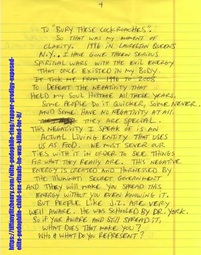 4
TO "BURY THESE COCKROACHES".
SO THAT WAS MY MOMENT OF
CLARITY. 1996 IN LAURELTON QUEENS
N.Y., I HAVE GONE THROUGH SERIOUS
SPIRITUAL WARS WITH THE EVIL ENERGY
THAT ONCE EXISTED IN MY BODY.
IT TOOK ME FROM 1996 TO 2008
TO DEFEAT THE NEGATIVITY THAT
HELD MY SOUL HOSTAGE ALL THESE YEARS.
SOME PEOPLE DO IT QUICKER, SOME NEVER.
AND SOME HAVE NO NEGATIVITY AT ALL.
THEY ARE SPECIAL.
THIS NEGATIVITY I SPEAK OF IS AN
ACTUAL LIVING ENTITY THAT USES
US AS FOOD. WE MUST SEVER OUR
TIES WITH IT IN ORDER TO SEE THINGS
FOR WHAT THEY REALLY ARE. THIS NEGATIVE
ENERGY IS CREATED AND HARNESSED BY
THE ILLUMINATI SECRET GOVERNMENT
AND THEY WILL MAKE YOU SPREAD THIS
ENERGY WITHOUT YOU EVEN KNOWING IT.
BUT PEOPLE LIKE J.Z. ARE VERY
WELL AWARE. HE WAS SCHOOLED BY DR. YORK.
SO IF YOU AWARE AND STILL SPREAD IT,
WHAT DOES THAT MAKE YOU?
WHO & WHAT DO YOU REPRESENT?